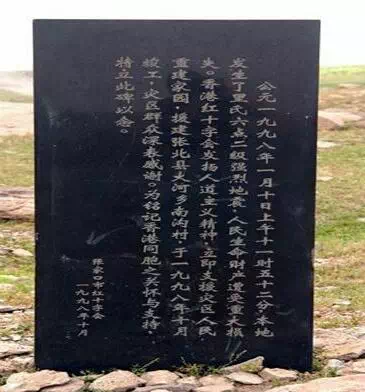 公元一九九八年一月十日上午十一时五十二分,本地
发生了里氏六点二级强烈地震,人民生命财产遭受重大损
失。香港红十字会发扬人道主义精神,立即支援灾区人民
重建家园,援建张北县大河乡南沟村,于一九九八年十月
竣工,灾区群众深表感谢。为铭记香港同胞之关怀与支持,
特立此碑以念。
张家口市红十字会
一九九八年十月